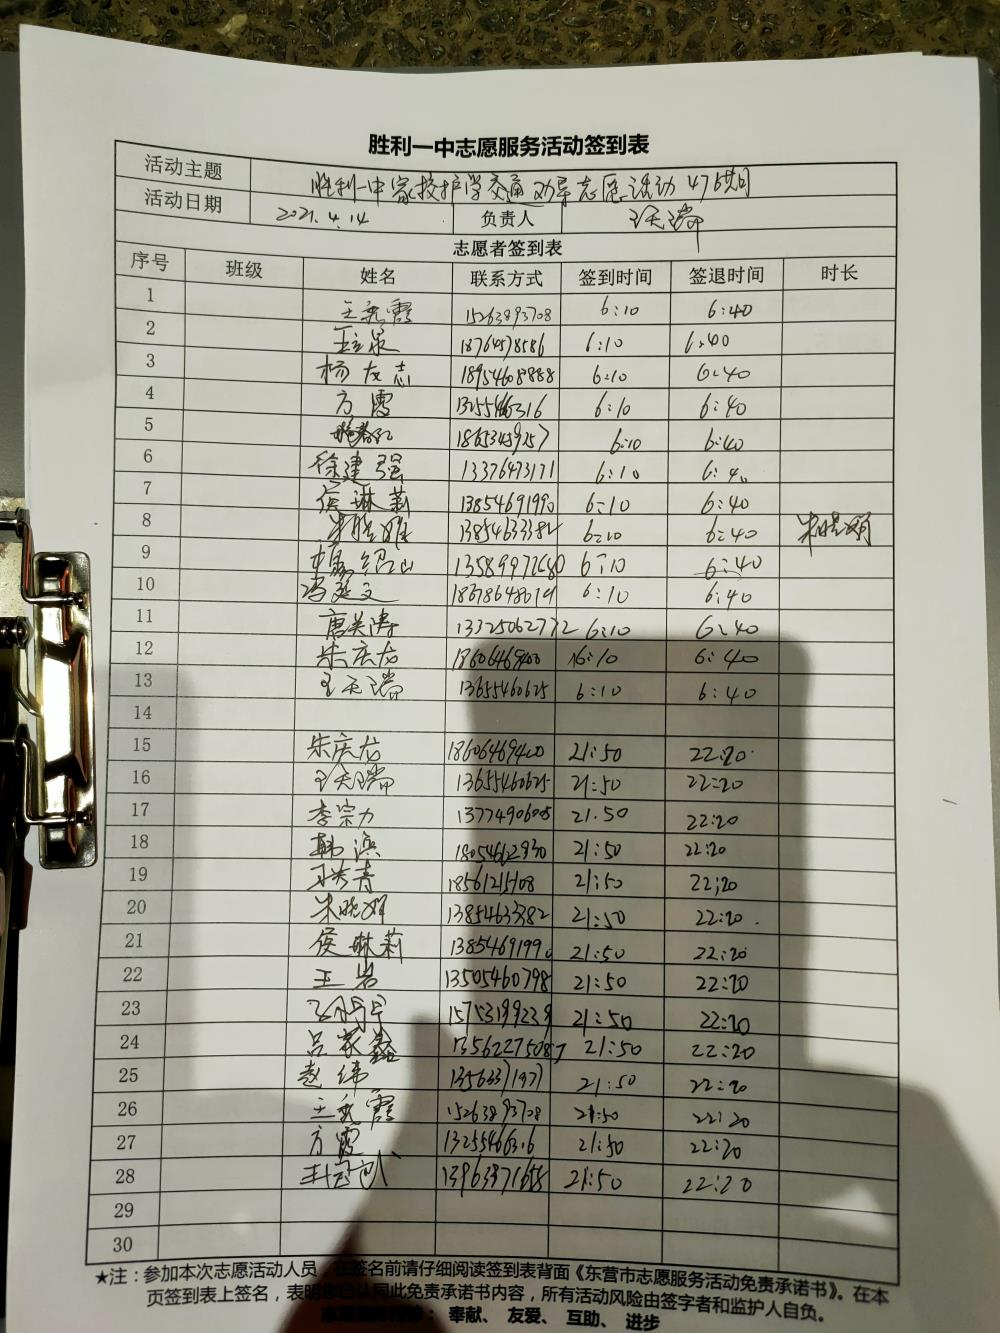 胜利一中志愿服务活动签到表
活动主题 胜利一中家校护学交通劝导志愿活动 476共同
活动日期 2021.4.14 负责人 王天瑞
志愿者签到表
序号 班级 姓名 联系方式 签到时间 签退时间 时长
1 王秀霞 15263893708 6:10 6:40
2 18764578586 6:10 6:40
3 杨友志 18954608888 6:10 6:40
4 方霞 13255466316 6:10 6:40
5 18653459257 6:10 6:40
6 徐建强 13376473171 6:10 6:40
7 侯琳莉 13854691990 6:10 6:40
8 朱晓雅 13854633382 6:10 6:40
9 13589972680 6:10 6:40
10 18678648019 6:10 6:40
11 唐英涛 13325062772 6:10 6:40
12 朱庆龙 18606469400 16:10 6:40
13 王天瑞 13655460625 6:10 6:40
14
15 朱庆龙 18606469400 21:50 22:20
16 王天瑞 13655460625 21:50 22:20
17 李宗力 13774906005 21:50 22:20
18 韩滨 18054612930 21:50 22:20
19 21:50 22:20
20 13854633382 21:50 22:20
21 侯琳莉 13854691990 21:50 22:20
22 王岩 13505460798 21:50 22:20
23 15753199239 21:50 22:20
24 吕家鑫 13562275087 21:50 22:20
25 赵纬 21:50 22:20
26 王秀霞 15263893708 21:50 22:20
27 方霞 13255466316 21:50 22:20
28 13963871658 21:50 22:20
29
30
★注：参加本次志愿活动人员，在签名前请仔细阅读签到表背面《东营市志愿服务活动免责承诺书》。在本
页签到表上签名，表明您已认同此免责承诺书内容，所有活动风险由签字者和监护人自负。
志愿服务精神： 奉献、 友爱、 互助、 进步